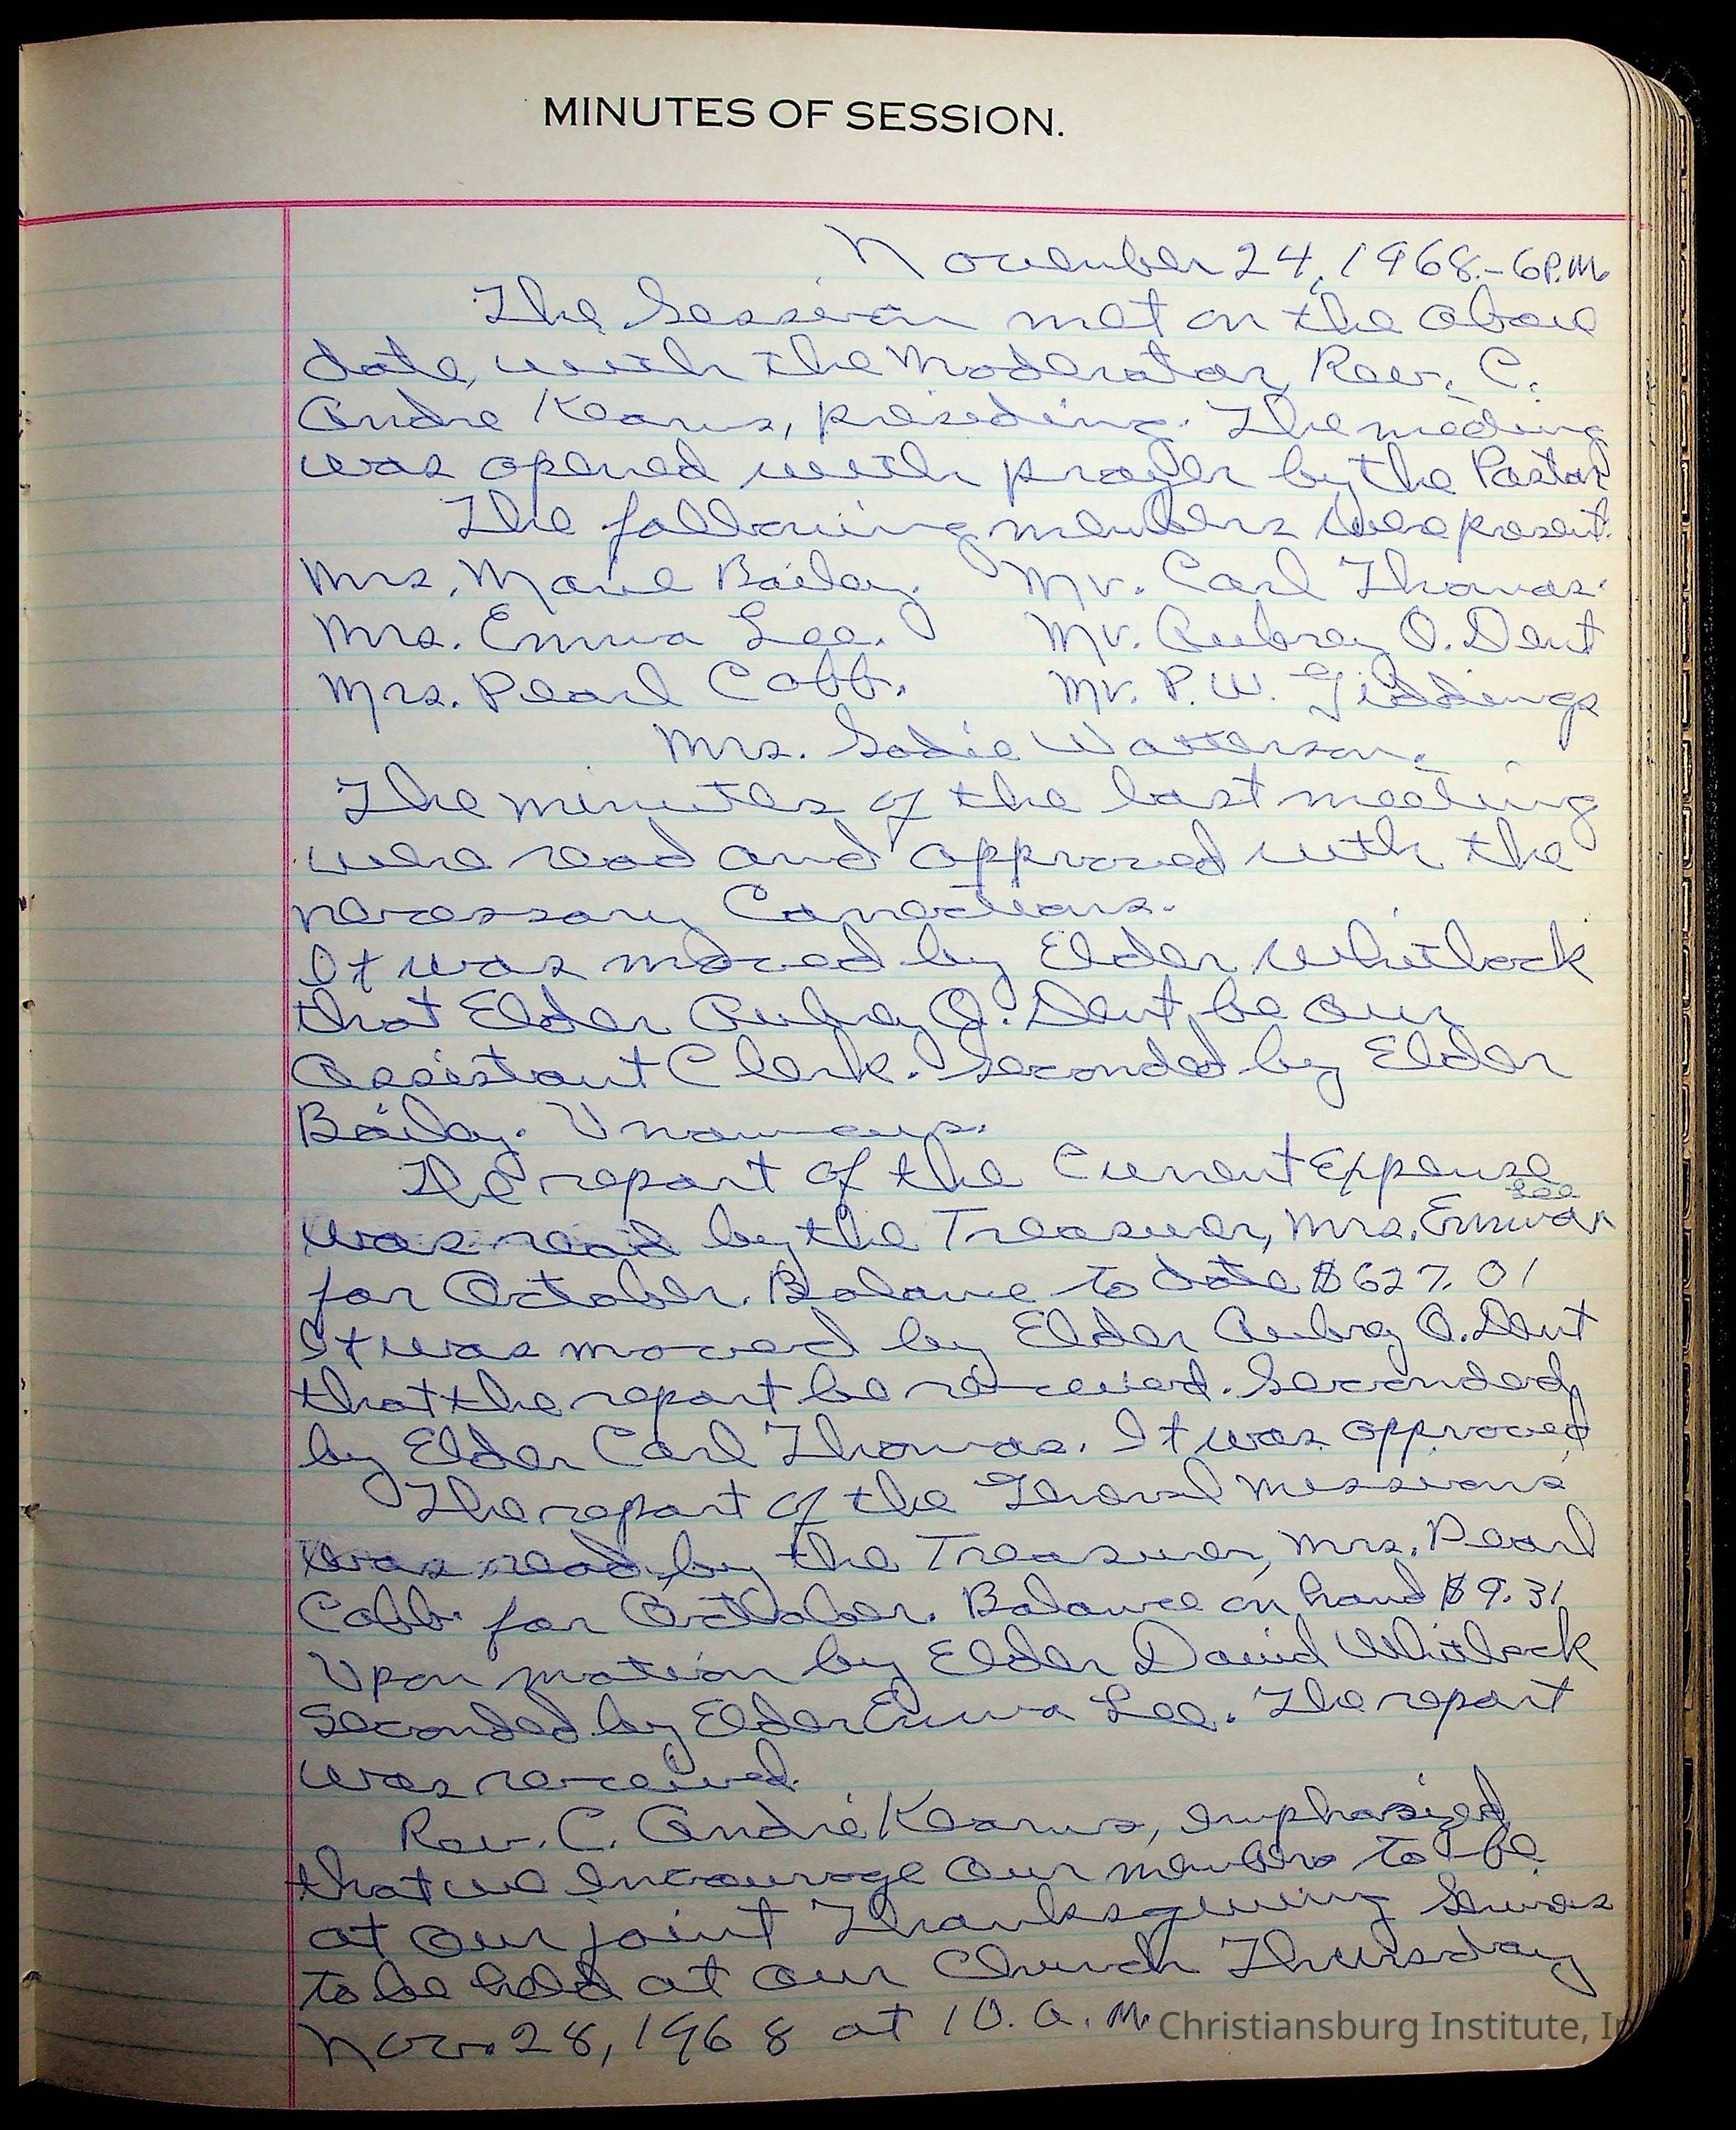 MINUTES OF SESSION.
November 24, 1968.- 6P.M.
The Session met on the above
date, with the Moderator, Rev. C.
Andre Kearns, presiding. The meeting
was opened with prayer by the Pastor
The following members were present.
Mrs. Marie Bailey. Mr. Carl Thomas.
Mrs. Emma Lee. Mr. Aubrey O. Dent
Mrs. Pearl Cobb. Mr. P. W. Giddings
Mrs. Sadie Watterson.
The minutes of the last meeting
were read and approved with the
necessary Corrections.
It was moved by Elder Whitlock
that Elder Aubrey O. Dent, be our
Assistant Clerk. Seconded by Elder
Bailey.
The report of the Current Expense
was read by the Treasurer, Mrs. Emma Lee
for October. Balance to date $627.01
It was moved by Elder Aubrey O. Dent
that the report be received. Seconded
by Elder Carl Thomas. It was approved
The report of the General Missions
was read by the Treasurer, Mrs. Pearl
Cobb for October. Balance on hand $9.31
Upon motion by Elder David Whitlock
Seconded by Elder Emma Lee. The report
was received.
Rev. C. André Kearns, emphasized
that we encourage our members to be
at our joint Thanksgiving
to be held at our Church Thursday
Nov. 28, 1968 at 10. a.m.
Christiansburg Institute,